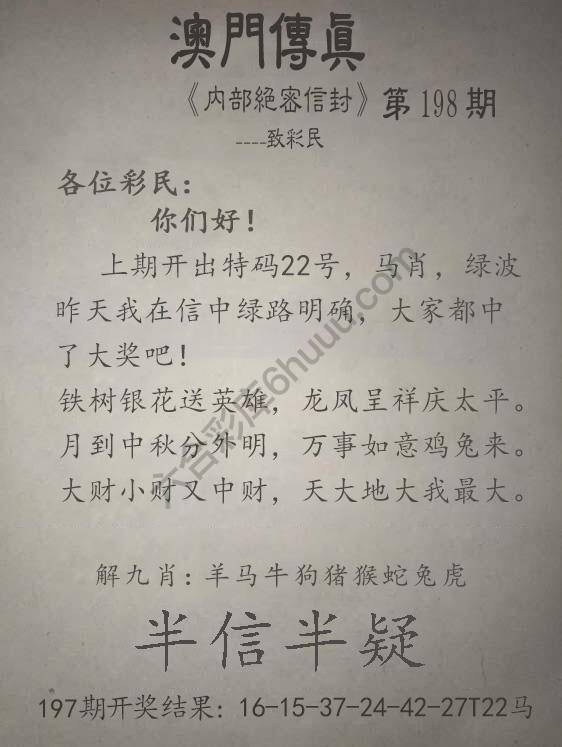 澳門傳眞
《内部絕密信封》第198期
----致彩民
各位彩民：
你们好！
上期开出特码22号，马肖，绿波
昨天我在信中绿路明确，大家都中
了大奖吧！
铁树银花送英雄，龙凤呈祥庆太平。
月到中秋分外明，万事如意鸡兔来。
大财小财又中财，天大地大我最大。
六合彩库6huuu.com
解九肖：羊马牛狗猪猴蛇兔虎
半信半疑
197期开奖结果：16-15-37-24-42-27T22马